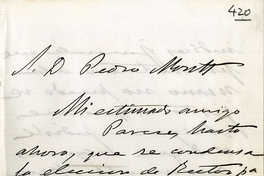 420
A. D. Pedro Montt
Mi estimado amigo
Parece, hasta
ahora, que se condensa
la eleccion de Rector pa